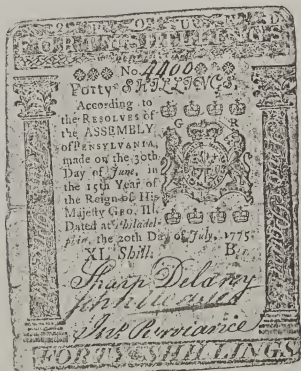 FORTY SHILLINGS
No. 4400
Forty SHILLINGS
According to
the RESOLVES of
the ASSEMBLY
of PENSYLVANIA,
made on the 30th
Day of June, in
the 15th Year of
the Reign of His
Majesty GEO. III.
Dated at Philadel-
phia, the 20th Day of July, 1775
G R
XL Shill. B
Sharp Delany
Jno Purviance
FORTY SHILLINGS